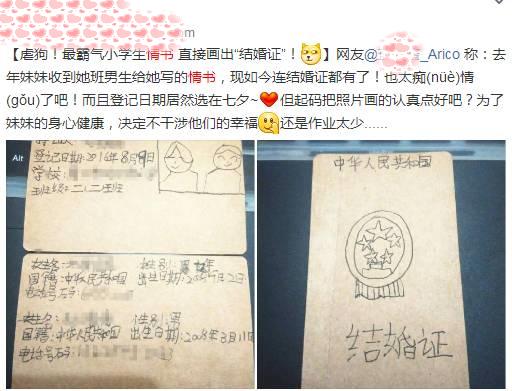 m
【虐狗！最霸气小学生情书 直接画出“结婚证”！ 】网友@ _Arico 称：去
年妹妹收到她班男生给她写的情书，现如今连结婚证都有了！也太痴(nüè)情
(gǒu)了吧！而且登记日期居然选在七夕~ 但起码把照片画的认真点好吧？为了
妹妹的身心健康，决定不干涉他们的幸福 还是作业太少......
Alt
登记日期:2016年8月9日
学校:
班级:二,二班
女生名: 性别:
国籍:中华人民共和国 出生日期:
电话号码:
性别:男
国籍:中华人民共和国 出生日期:2008年3月11日
电话号码: 3
中华人民共和国
结婚证